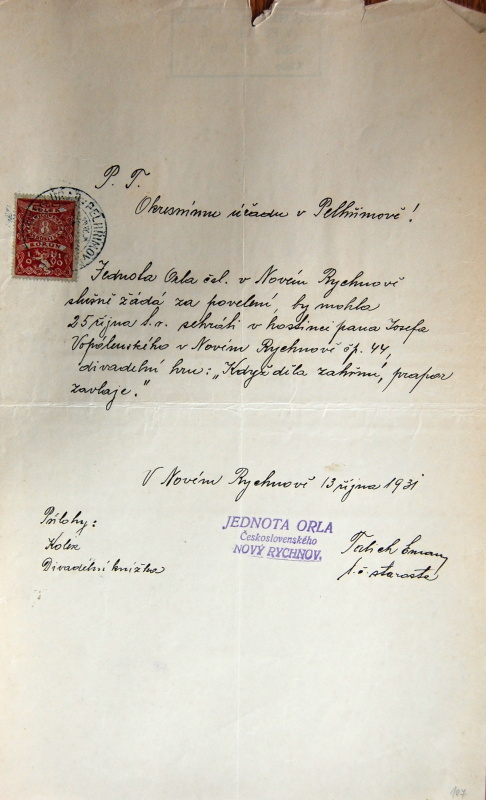 P. T.
Okresnímu úřadu v Pelhřimově!
Jednota Orla čsl. v Novém Rychnově
slušně žádá za povelení, by mohla
25 října t. r. sehráti v hostinci pana Josefa
Vopálenského v Novém Rychnově čp. 44,
divadelní hru: „Když děla zahřmí, prapor
zavlaje."
V Novém Rychnově 13 října 1931
Přílohy:
Kolek
Divadelní knížka
JEDNOTA ORLA
Československého
NOVÝ RYCHNOV.
t. č. starosta
KOLEK
8
KORUN
107